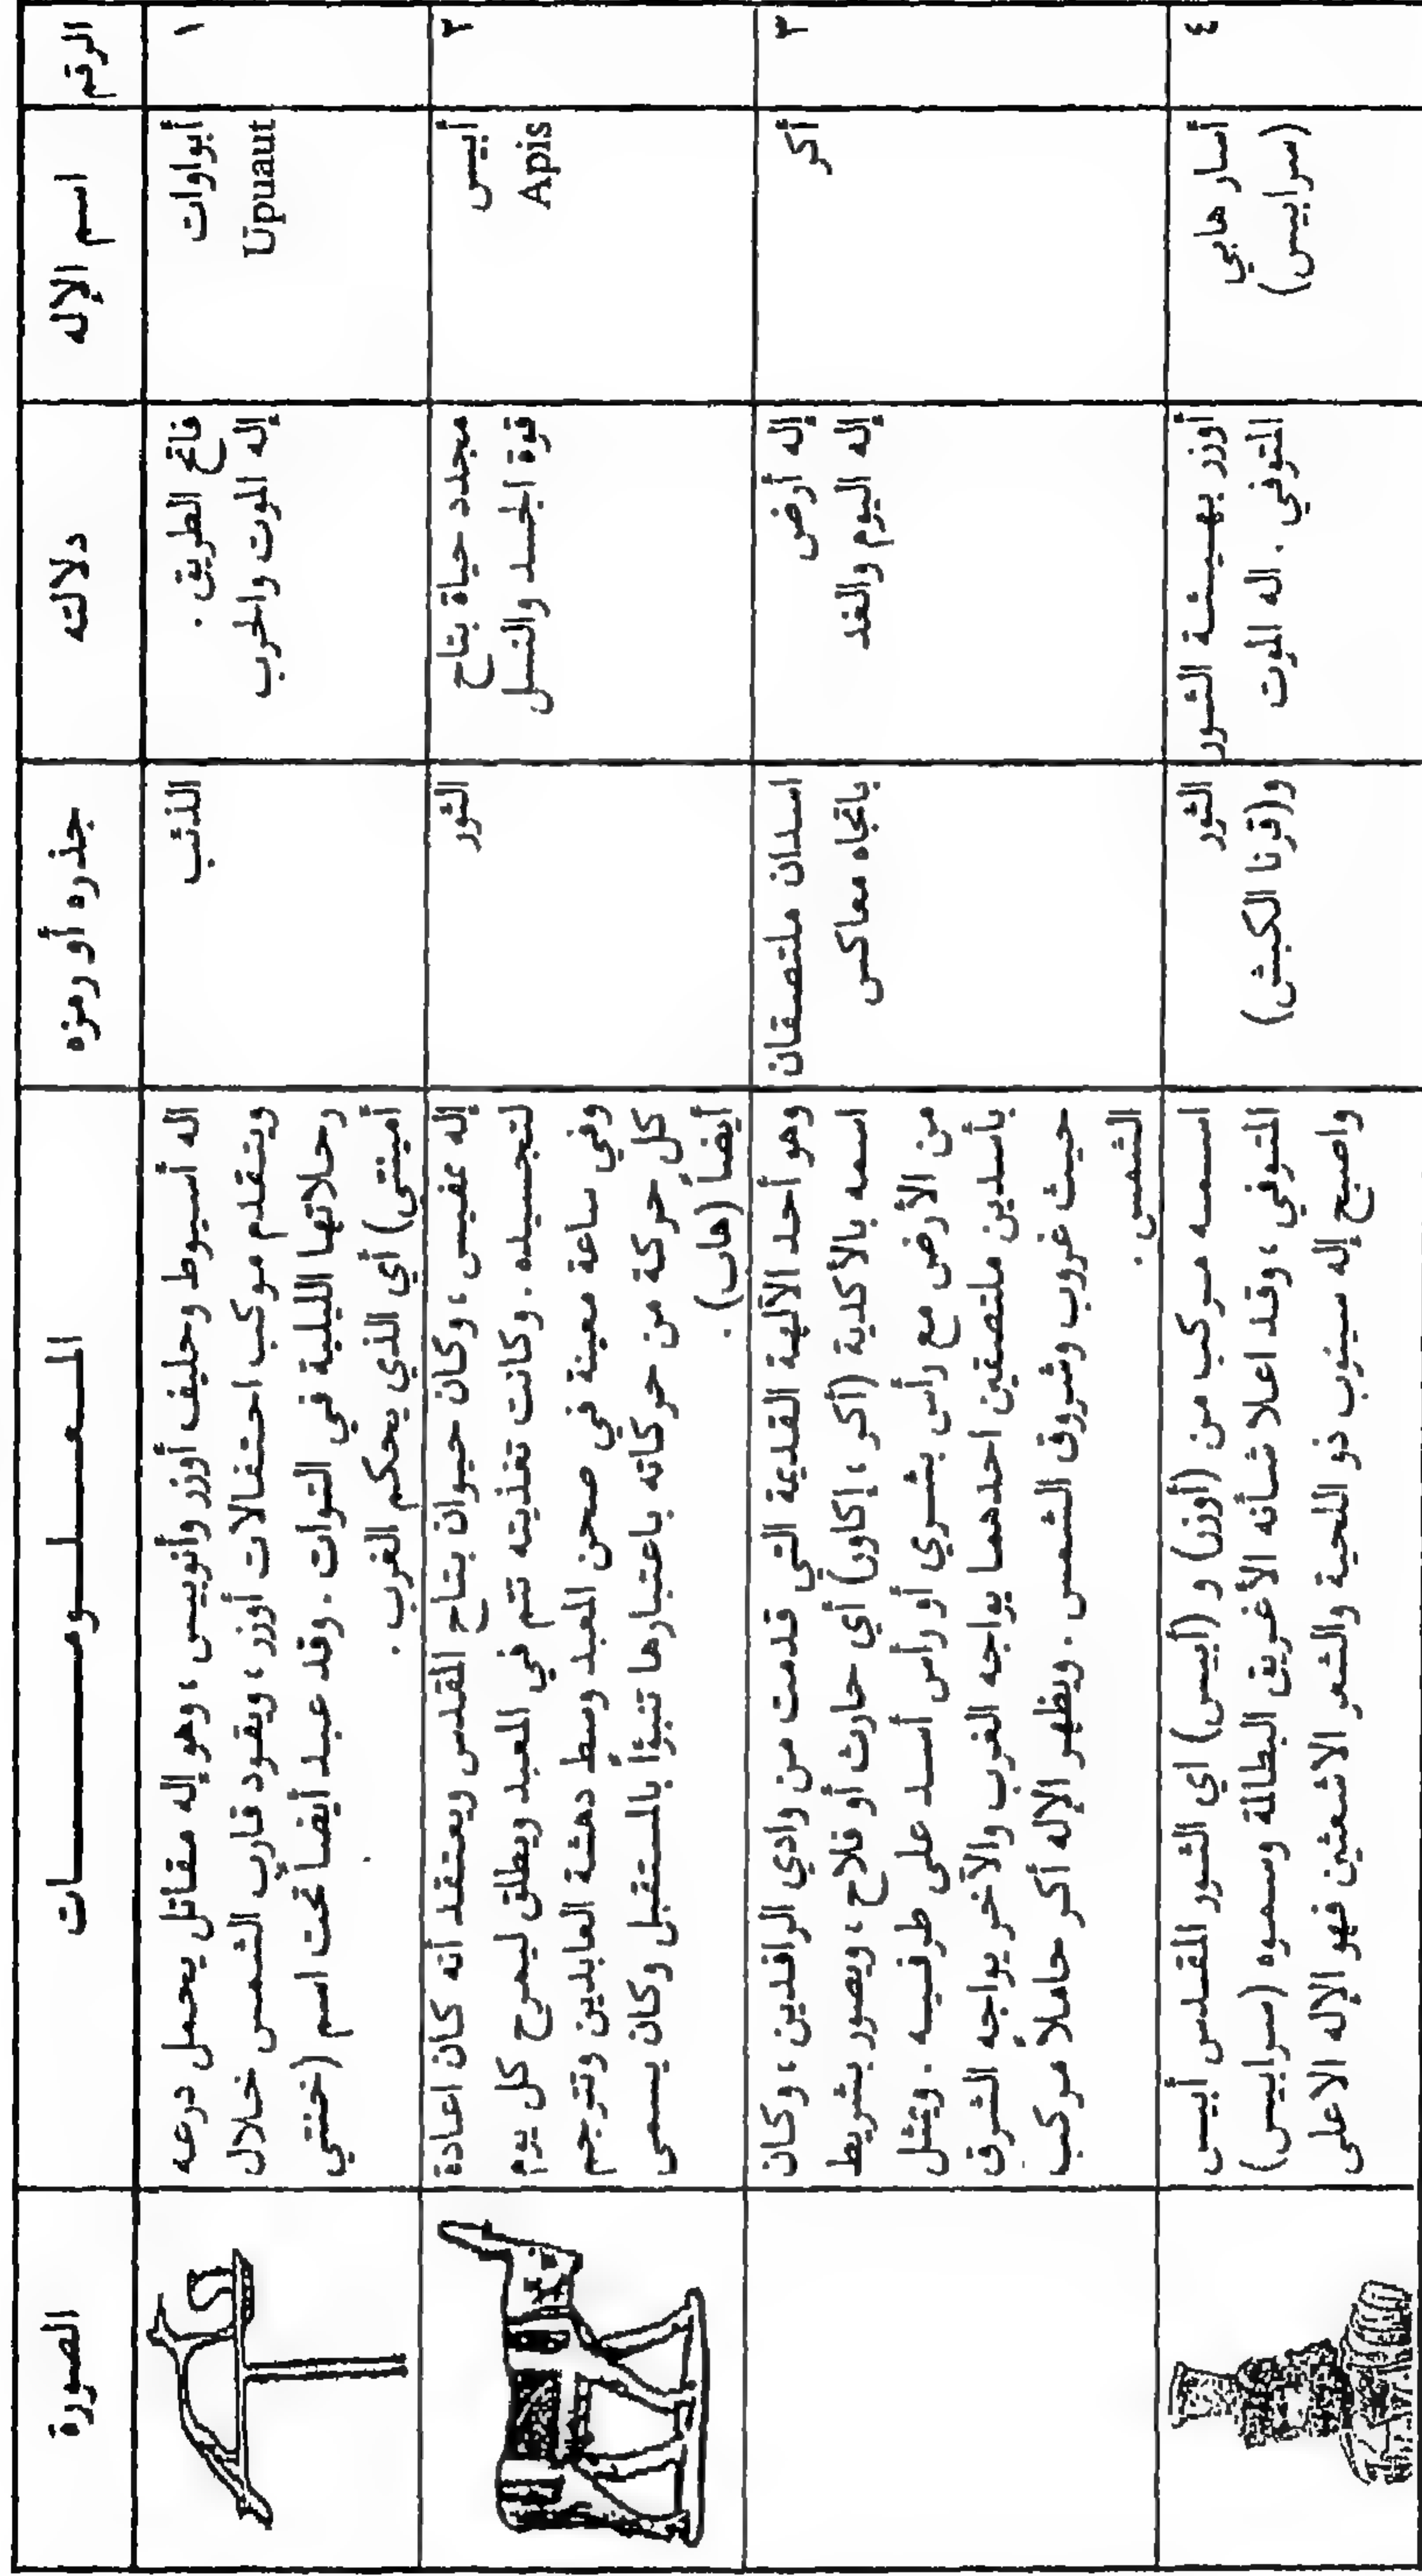 الرقم
اسم الإله
دلالته
جذره أو رمزه
المعلومات
الصورة
١
أبواوات
Upuaut
فاتح الطريق .
إله الموت والحرب
الذئب
اله أسيوط وحليف أوزر وأنوبيس ، وهو إله مقاتل يحمل درعه
ويتقدم موكب احتفالات أوزر ، ويقود قارب الشمس خلال
رحلاتها الليلية في التوات . وقد عبد أيضاً تحت اسم (خنتي
أمينتى) أي الذي يحكم الغرب .
٢
أبيس
Apis
مجدد حياة بتاح
قوة الجسد والنسل
الثور
إله ممفيس ، وكان حيوان بتاح المقدس ويعتقد أنه كان اعادة
لتجسيده . وكانت تغذيته تتم في المعبد ويطلق ليمرح كل يوم
وفي ساعة معينة في صحن المعبد وسط دهشة العابدين وتترجم
كل حركة من حركاته باعتبارها تنبؤاً بالمستقبل وكان يسمى
أيضاً (هاب) .
٣
أكر
إله أرض
إله اليوم والغد
اسدان ملتصقان
باتجاه معاكس
وهو أحد الآلهة القديمة التي قدمت من وادي الرافدين ، وكان
اسمه بالأكدية (أكر ، إكاور) أي حارث أو فلاح ، ويصور بشريط
من الأرض مع رأس بشري أو رأس أسد على طرفيه . ويمثل
بأسدين ملتصقين احدهما يواجه الغرب والآخر يواجه الشرق
حيث غروب وشروق الشمس . ويظهر الإله أكر حاملاً مركب
الشمس .
٤
أسار هابي
(سرابيس)
أوزر بهيئة الثور
المتوفي . اله الموت
الثور
و(قرنا الكبش)
اسمه مركب من (أوزر) و (أبيس) اي الثور المقدس أبيس
المتوفي ، وقد اعلا شأنه الأغريق البطالمة وسموه (سرابيس)
واصبح إله سينوب ذو اللحية والشعر الاشعثين فهو الإله الاعلى